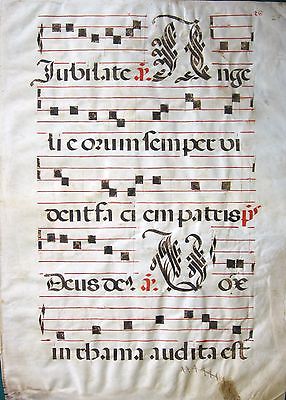 Iubilate añ. Ange
li e orum semper vi
dent fa ci em patris ps
Deus de9. añ. Vox
in rhama audita est